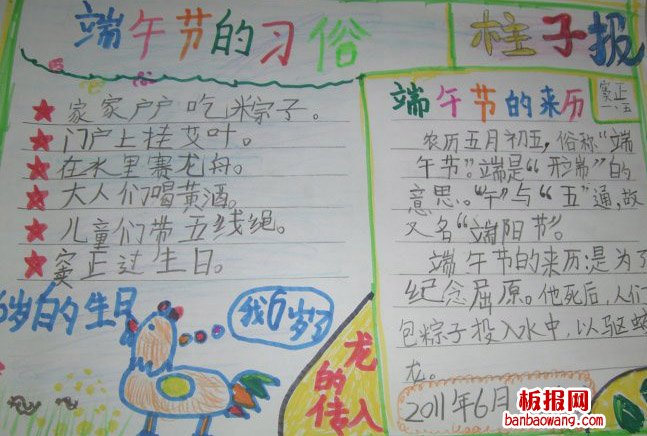 端午节的习俗
柱子报
★家家户户吃粽子。
★门户上挂艾叶。
★在水里赛龙舟。
★大人们喝黄酒。
★儿童们带五线绳。
★窦正过生日。
6岁的生日
我6岁了
龙的传人
端午节的来历
窦正
一、五
农历五月初五，俗称“端
午节”。端是“
”的
意思。“午”与“五”通，故
又名“端阳节”。
端午节的来历是为了
纪念屈原。他死后，人们
包粽子投入水中，以驱蛟
龙。
2011年6月
板报网
banbaowang.com